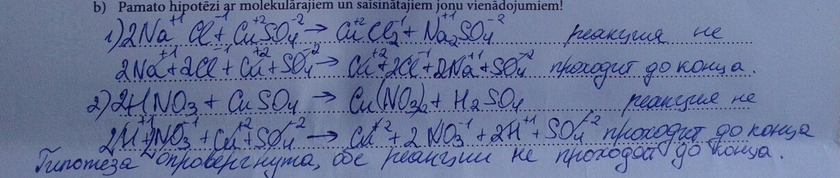 b) Pamato hipotēzi ar molekulārajiem un saīsinātajiem jonu vienādojumiem!
1) 2Na⁺¹Cl⁻¹ + Cu⁺²SO₄⁻² → Cu⁺²Cl₂⁻¹ + Na₂⁺¹SO₄⁻² реакция не
2Na⁺¹ + 2Cl⁻¹ + Cu⁺² + SO₄⁻² → Cu⁺² + 2Cl⁻¹ + 2Na⁺¹ + SO₄⁻² проходит до конца.
2) 2HNO₃ + CuSO₄ → Cu(NO₃)₂ + H₂SO₄ реакция не
2H⁺¹ + 2NO₃⁻¹ + Cu⁺² + SO₄⁻² → Cu⁺² + 2NO₃⁻¹ + 2H⁺¹ + SO₄⁻² проходит до конца
Гипотеза опровергнута, обе реакции не проходят до конца.